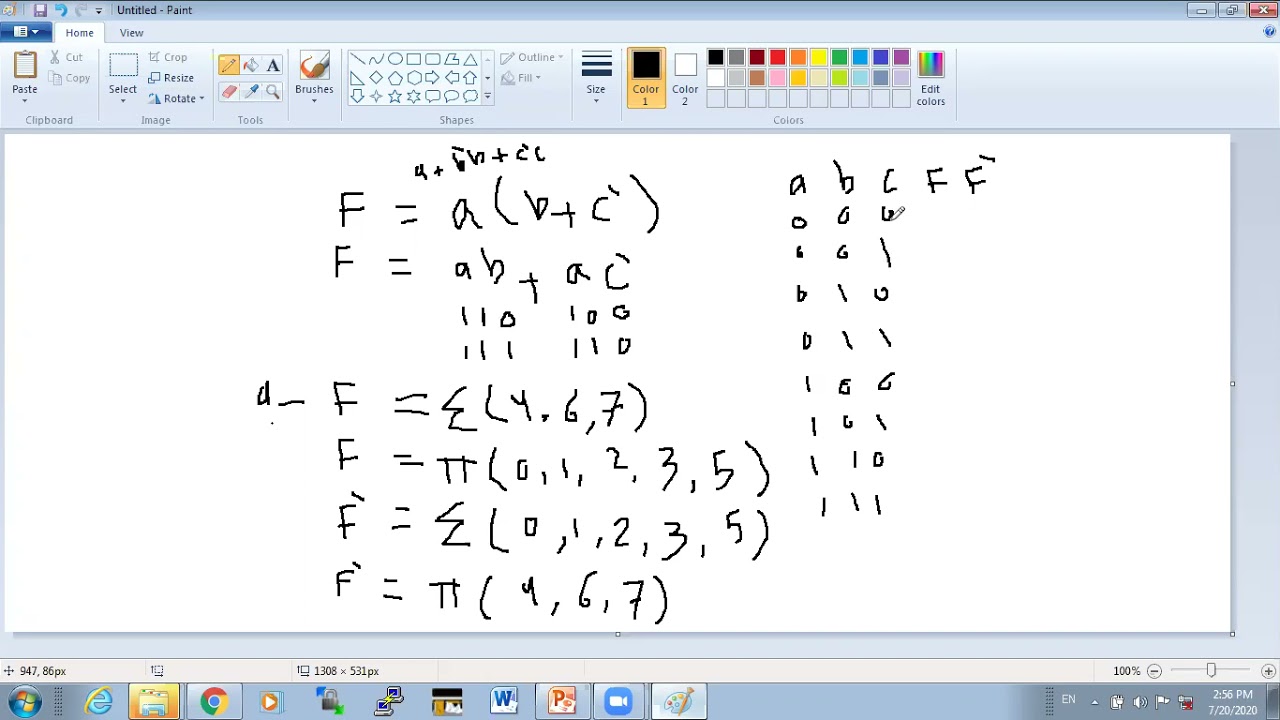 Untitled - Paint
Home View
Paste
Cut
Copy
Clipboard
Select
Crop
Resize
Rotate
Image
Tools
Brushes
Shapes
Outline
Fill
Size
Color 1
Color 2
Colors
Edit colors
F = a(b+c`)
F = ab + ac`
110 100
111 110
a- F = Σ(4,6,7)
F = π(0,1,2,3,5)
F` = Σ(0,1,2,3,5)
F` = π(4,6,7)
a b c F F`
0 0 0
0 0 1
0 1 0
0 1 1
1 0 0
1 0 1
1 1 0
1 1 1
947, 86px
1308 × 531px
100%
EN
2:56 PM
7/20/2020